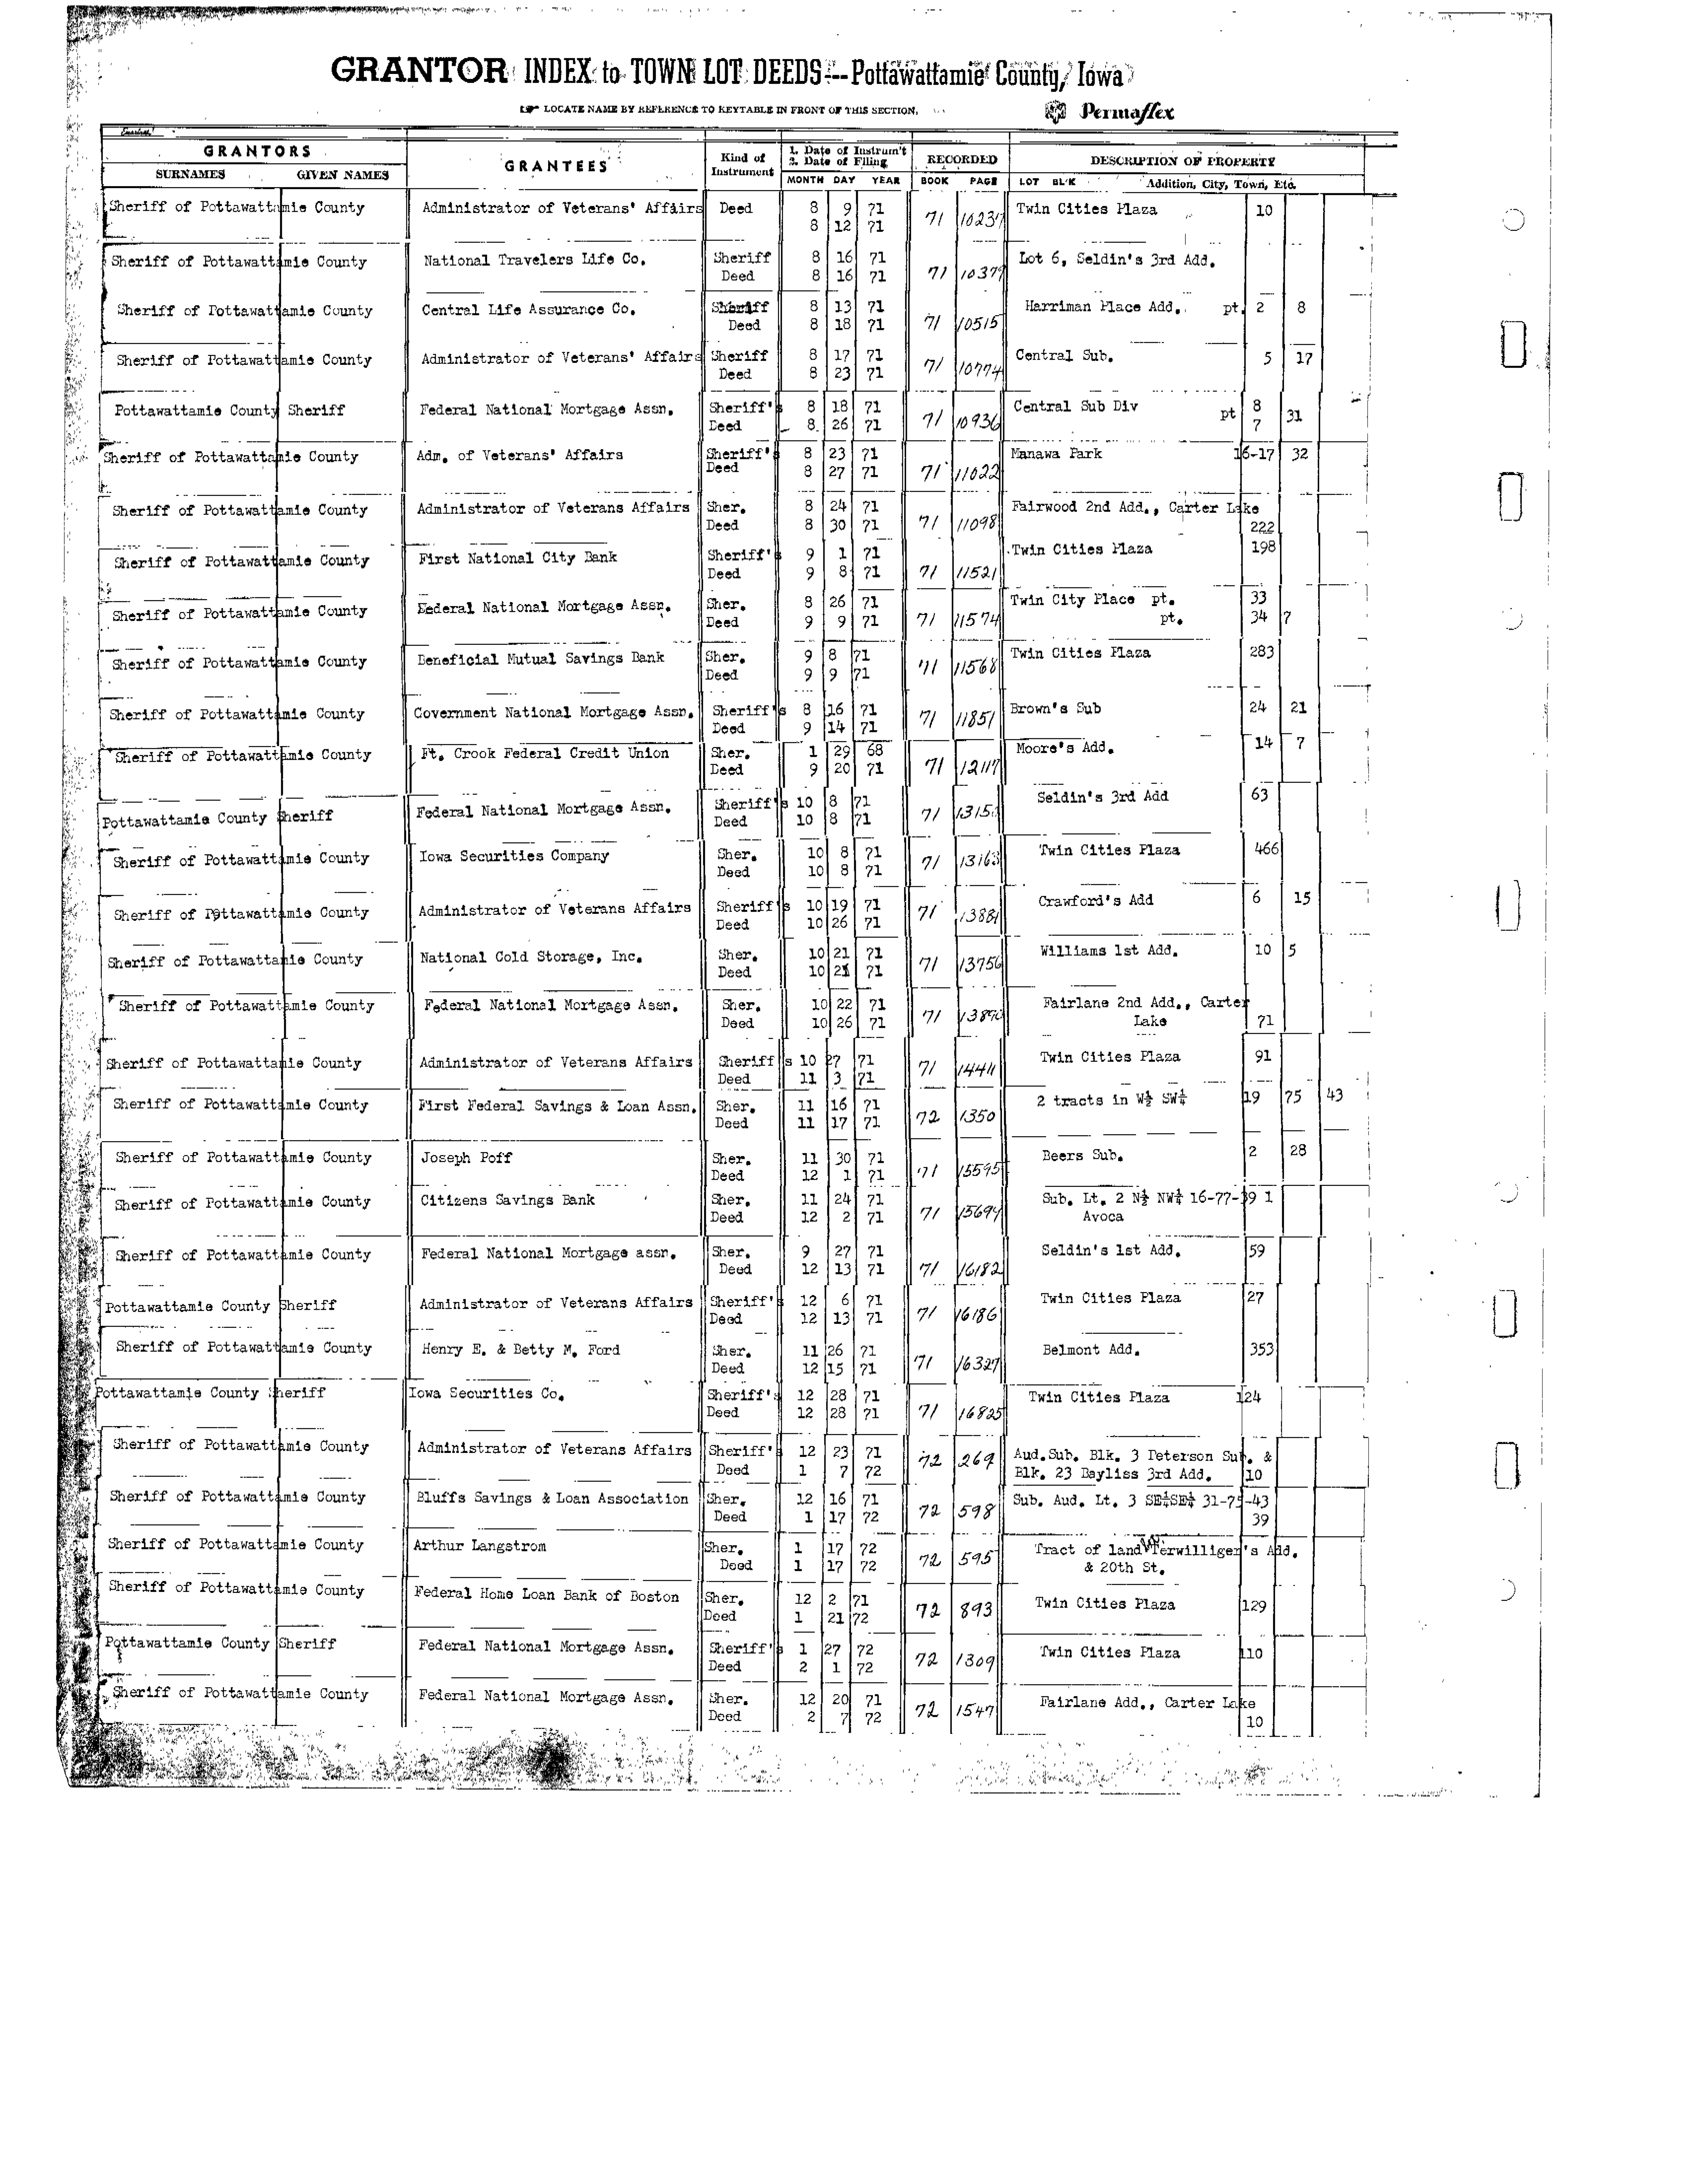 GRANTOR INDEX to TOWN LOT DEEDS--Pottawattamie County, Iowa
LOCATE NAME BY REFERENCE TO KEYTABLE IN FRONT OF THIS SECTION. Permaflex
GRANTORS GRANTEES Kind of Instrument 1. Date of Instrum't 2. Date of Filing RECORDED DESCRIPTION OF PROPERTY
SURNAMES GIVEN NAMES MONTH DAY YEAR BOOK PAGE LOT BL'K Addition, City, Town, Etc.
Sheriff of Pottawattamie County Administrator of Veterans' Affairs Deed 8 9 71 71 10237 Twin Cities Plaza 10
8 12 71
Sheriff of Pottawattamie County National Travelers Life Co. Sheriff 8 16 71 71 10379 Lot 6, Seldin's 3rd Add.
Deed 8 16 71
Sheriff of Pottawattamie County Central Life Assurance Co. Sheriff 8 13 71 71 10515 Harriman Place Add. pt. 2 8
Deed 8 18 71
Sheriff of Pottawattamie County Administrator of Veterans' Affairs Sheriff 8 17 71 71 10774 Central Sub. 5 17
Deed 8 23 71
Pottawattamie County Sheriff Federal National Mortgage Assn. Sheriff's 8 18 71 71 10936 Central Sub Div pt 8 31
Deed 8 26 71 7
Sheriff of Pottawattamie County Adm. of Veterans' Affairs Sheriff's 8 23 71 71 11022 Manawa Park 16-17 32
Deed 8 27 71
Sheriff of Pottawattamie County Administrator of Veterans Affairs Sher. 8 24 71 71 11098 Fairwood 2nd Add., Carter Lake
Deed 8 30 71 222
Sheriff of Pottawattamie County First National City Bank Sheriff's 9 1 71 71 11521 Twin Cities Plaza 198
Deed 9 8 71
Sheriff of Pottawattamie County Federal National Mortgage Assn. Sher. 8 26 71 71 11574 Twin City Place pt. 33
Deed 9 9 71 pt. 34 7
Sheriff of Pottawattamie County Beneficial Mutual Savings Bank Sher. 9 8 71 71 11568 Twin Cities Plaza 283
Deed 9 9 71
Sheriff of Pottawattamie County Government National Mortgage Assn. Sheriff's 8 16 71 71 11851 Brown's Sub 24 21
Deed 9 14 71
Sheriff of Pottawattamie County Ft. Crook Federal Credit Union Sher. 1 29 68 71 Moore's Add. 14 7
Deed 9 20 71
Pottawattamie County Sheriff Federal National Mortgage Assn. Sheriff's 10 8 71 71 Seldin's 3rd Add 63
Deed 10 8 71
Sheriff of Pottawattamie County Iowa Securities Company Sher. 10 8 71 71 13163 Twin Cities Plaza 466
Deed 10 8 71
Sheriff of Pottawattamie County Administrator of Veterans Affairs Sheriff's 10 19 71 71 Crawford's Add 6 15
Deed 10 26 71
Sheriff of Pottawattamie County National Cold Storage, Inc. Sher. 10 21 71 71 13756 Williams 1st Add. 10 5
Deed 10 21 71
Sheriff of Pottawattamie County Federal National Mortgage Assn. Sher. 10 22 71 71 13890 Fairlane 2nd Add., Carter
Deed 10 26 71 Lake 71
Sheriff of Pottawattamie County Administrator of Veterans Affairs Sheriff's 10 27 71 71 Twin Cities Plaza 91
Deed 11 3 71
Sheriff of Pottawattamie County First Federal Savings & Loan Assn. Sher. 11 16 71 72 1350 2 tracts in W½ SW¼ 19 75 43
Deed 11 17 71
Sheriff of Pottawattamie County Joseph Poff Sher. 11 30 71 71 15595 Beers Sub. 2 28
Deed 12 1 71
Sheriff of Pottawattamie County Citizens Savings Bank Sher. 11 24 71 71 15694 Sub. Lt. 2 N½ NW¼ 16-77-39 1
Deed 12 2 71 Avoca
Sheriff of Pottawattamie County Federal National Mortgage assn. Sher. 9 27 71 71 16182 Seldin's 1st Add. 59
Deed 12 13 71
Pottawattamie County Sheriff Administrator of Veterans Affairs Sheriff's 12 6 71 71 16186 Twin Cities Plaza 27
Deed 12 13 71
Sheriff of Pottawattamie County Henry E. & Betty M. Ford Sher. 11 26 71 71 16327 Belmont Add. 353
Deed 12 15 71
Pottawattamie County Sheriff Iowa Securities Co. Sheriff's 12 28 71 71 16825 Twin Cities Plaza 124
Deed 12 28 71
Sheriff of Pottawattamie County Administrator of Veterans Affairs Sheriff's 12 23 71 72 269 Aud.Sub. Blk. 3 Peterson Sub. &
Deed 1 7 72 Blk. 23 Bayliss 3rd Add. 10
Sheriff of Pottawattamie County Bluffs Savings & Loan Association Sher. 12 16 71 72 598 Sub. Aud. Lt. 3 SE¼SE¼ 31-75-43
Deed 1 17 72 39
Sheriff of Pottawattamie County Arthur Langstrom Sher. 1 17 72 72 595 Tract of land Terwilliger's Add.
Deed 1 17 72 & 20th St.
Sheriff of Pottawattamie County Federal Home Loan Bank of Boston Sher. 12 2 71 72 893 Twin Cities Plaza 129
Deed 1 21 72
Pottawattamie County Sheriff Federal National Mortgage Assn. Sheriff's 1 27 72 72 1309 Twin Cities Plaza 110
Deed 2 1 72
Sheriff of Pottawattamie County Federal National Mortgage Assn. Sher. 12 20 71 72 1547 Fairlane Add., Carter Lake
Deed 2 7 72 10